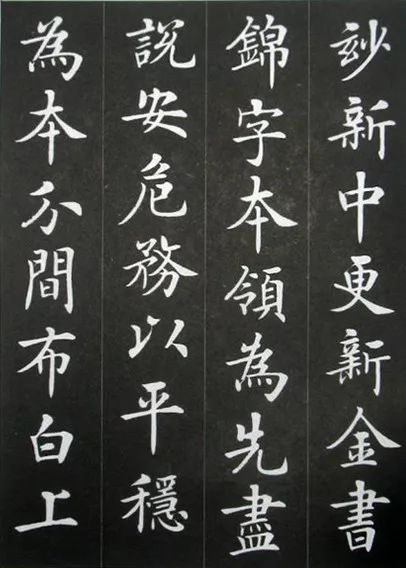 玅新中更新金書
錦字本領為先盡
說安危務以平穩
為本分間布白上